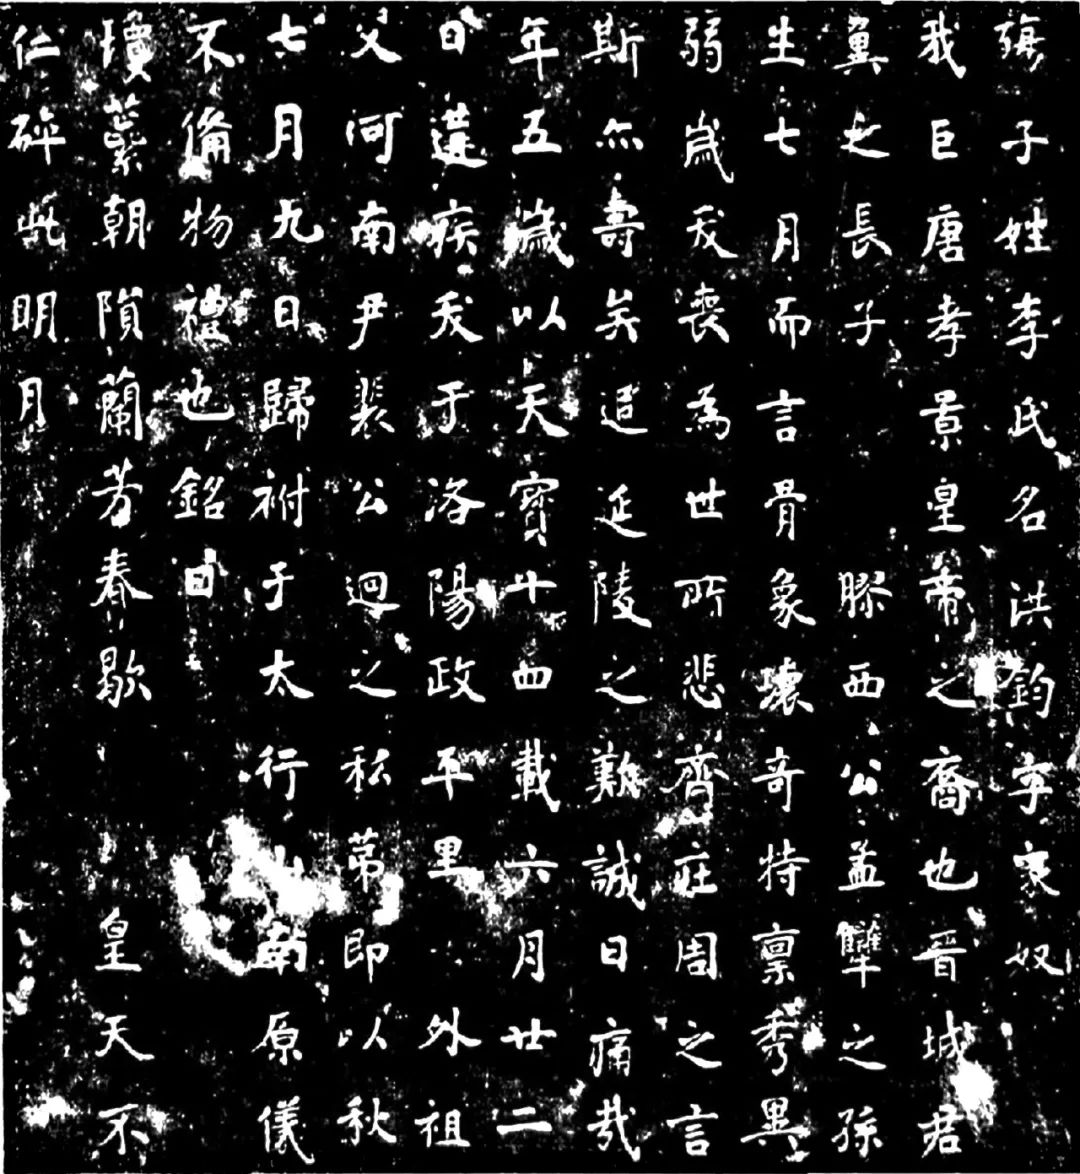 殤子姓李氏名洪鈞字家奴
我巨唐孝景皇帝之裔也晉城君
冀之長子 膠西公孟犨之孫
生七月而言骨象壞奇特稟秀異
弱歲夭喪為世所悲齊莊周之言
斯亦壽矣追延陵之難誠曰痛哉
年五歲以天寶十四載六月廿二
日遘疾夭于洛陽政平里 外祖
父河南尹裴公迥之私第即以秋
七月九日歸祔于太行山南原儀
不備物禮也銘曰
瓊蘂朝隕蘭芳春歇 皇天不
仁碎此明月